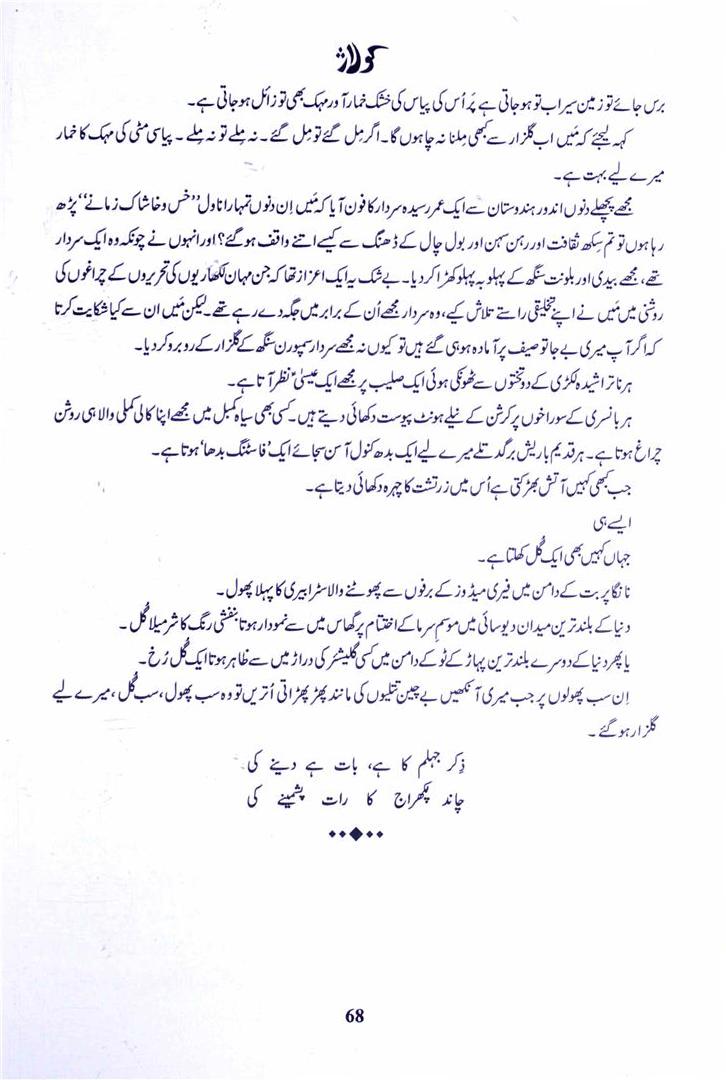 کولاژ
برس جائے تو زمین سیراب تو ہو جاتی ہے پَر اُس کی پیاس کی خشک خمار آور مہک بھی تو زائل ہو جاتی ہے۔
کہہ لیجئے کہ مَیں اب گلزار سے کبھی مِلنا نہ چاہوں گا۔ اگر مِل گئے تو مِل گئے۔ نہ مِلے تو نہ مِلے۔ پیاسی مٹی کی مہک کا خمار
میرے لیے بہت ہے۔
مجھے پچھلے دنوں اندور ہندوستان سے ایک عمر رسیدہ سردار کا فون آیا کہ مَیں اِن دنوں تمہارا ناول ”خس و خاشاک زمانے“ پڑھ
رہا ہوں تو تم سِکھ ثقافت اور رہن سہن اور بول چال کے ڈھنگ سے کیسے اتنے واقف ہو گئے؟ اور انہوں نے چونکہ وہ ایک سردار
تھے، مجھے بیدی اور بلونت سنگھ کے پہلو بہ پہلو کھڑا کر دیا۔ بے شک یہ ایک اعزاز تھا کہ جن مہان لکھاریوں کی تحریروں کے چراغوں کی
روشنی میں مَیں نے اپنے تخلیقی راستے تلاش کیے، وہ سردار مجھے اُن کے برابر میں جگہ دے رہے تھے۔ لیکن مَیں ان سے کیا شکایت کرتا
کہ اگر آپ میری بے جا توصیف پر آمادہ ہو ہی گئے ہیں تو کیوں نہ مجھے سردار سمپورن سنگھ کے گلزار کے روبرو کر دیا۔
ہر ناتراشیدہ لکڑی کے دو تختوں سے ٹھونکی ہوئی ایک صلیب پر مجھے ایک عیسیٰؑ نظر آتا ہے۔
ہر بانسری کے سوراخوں پر کرشن کے نیلے ہونٹ پیوست دکھائی دیتے ہیں۔ کسی بھی سیاہ کمبل میں مجھے اپنا کالی کملی والا ہی روشن
چراغ ہوتا ہے۔ ہر قدیم باریش برگد تلے میرے لیے ایک بدھ کنول آسن سجائے ایک ’فاسٹنگ بدھا‘ ہوتا ہے۔
جب کبھی کہیں آتش بھڑکتی ہے اُس میں زرتشت کا چہرہ دکھائی دیتا ہے۔
ایسے ہی
جہاں کہیں بھی ایک گُل کھلتا ہے۔
نانگا پربت کے دامن میں فیری میڈوز کے برفوں سے پھوٹنے والا سٹرابیری کا پہلا پھول۔
دنیا کے بلند ترین میدان دیوسائی میں موسمِ سرما کے اختتام پر گھاس میں سے نمودار ہوتا بنفشی رنگ کا شرمیلا گُل۔
یا پھر دنیا کے دوسرے بلند ترین پہاڑ کے ٹو کے دامن میں کسی گلیشئر کی دراڑ میں سے ظاہر ہوتا ایک گُل رُخ۔
اِن سب پھولوں پر جب میری آنکھیں بے چین تتلیوں کی مانند پھڑپھڑاتی اُتریں تو وہ سب پھول، سب گُل، میرے لیے
گلزار ہو گئے۔
ذِکر جہلم کا ہے، بات ہے دینے کی
چاند پکھراج کا رات پشمینے کی
68